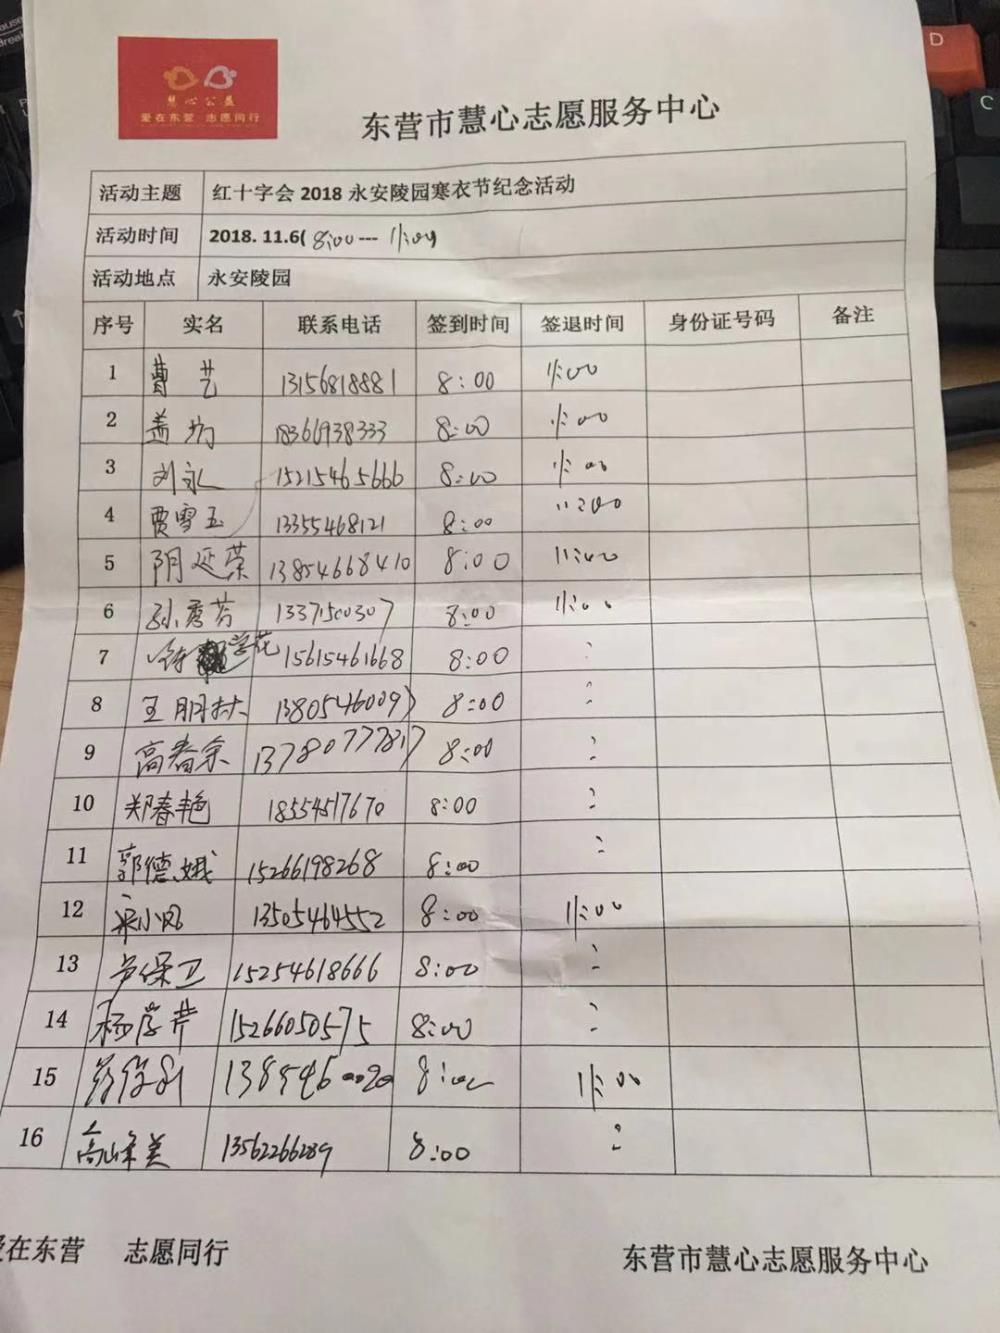 慧心公益
爱在东营 志愿同行
东营市慧心志愿服务中心
活动主题 红十字会2018永安陵园寒衣节纪念活动
活动时间 2018.11.6(8:00---11:00)
活动地点 永安陵园
序号 实名 联系电话 签到时间 签退时间 身份证号码 备注
1 曹艺 13156818881 8:00 11:00
2 盖 18366938333 8:00 11:00
3 刘永 15215465666 8:00 11:00
4 贾雪玉 13355468121 8:00 11:00
5 阴延荣 13854668410 8:00 11:00
6 孙秀芳 13371500307 8:00 11:00
7 学花 15615461668 8:00 :
8 王朋林 13805460093 8:00 :
9 高春余 13780777817 8:00 :
10 郑春艳 18554517670 8:00 :
11 郭德娥 15266198268 8:00 :
12 宋小凤 13505464552 8:00 11:00
13 芦保卫 15254618666 8:00 :
14 杨学芹 15266050575 8:00 :
15 8:00 11:00
16 高峰美 13562266289 8:00 :
爱在东营 志愿同行 东营市慧心志愿服务中心
D
C